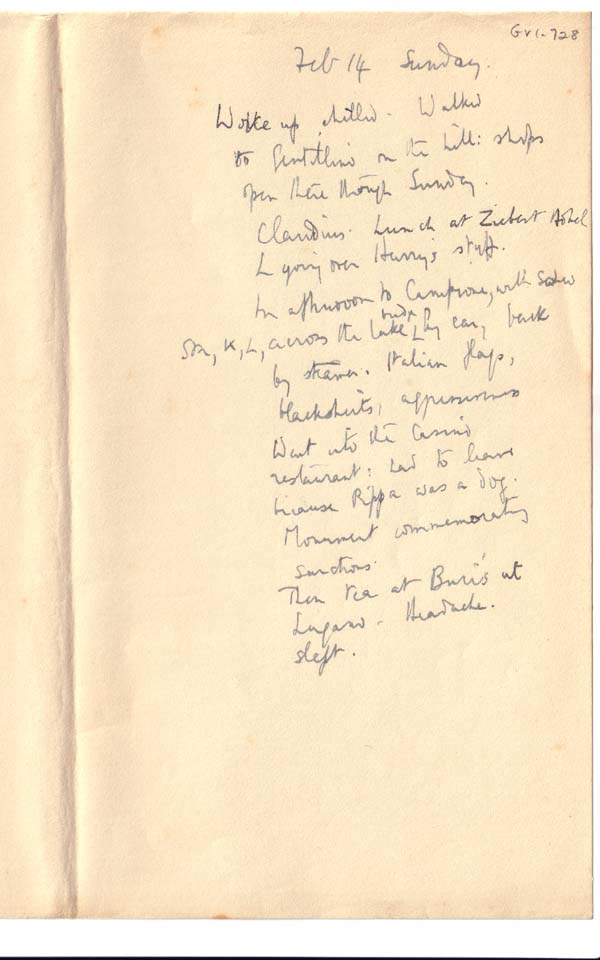 GV1-728
Feb 14 Sunday.
Woke up chilled. Walked
to Gentilino on the hill: shops
open there though Sunday.
Claudius. Lunch at Ziebert Hotel
L going over Harry's stuff.
In afternoon to Campione, with
Son, K, L, across the lake, by car, back
by steamer. Italian flags,
blackshirts, aggressiveness
Went into the Casino
restaurant: had to leave
because Pippa was a dog.
Monument commemorating
sanctions.
Then tea at at
Lugano - Headache.
slept.